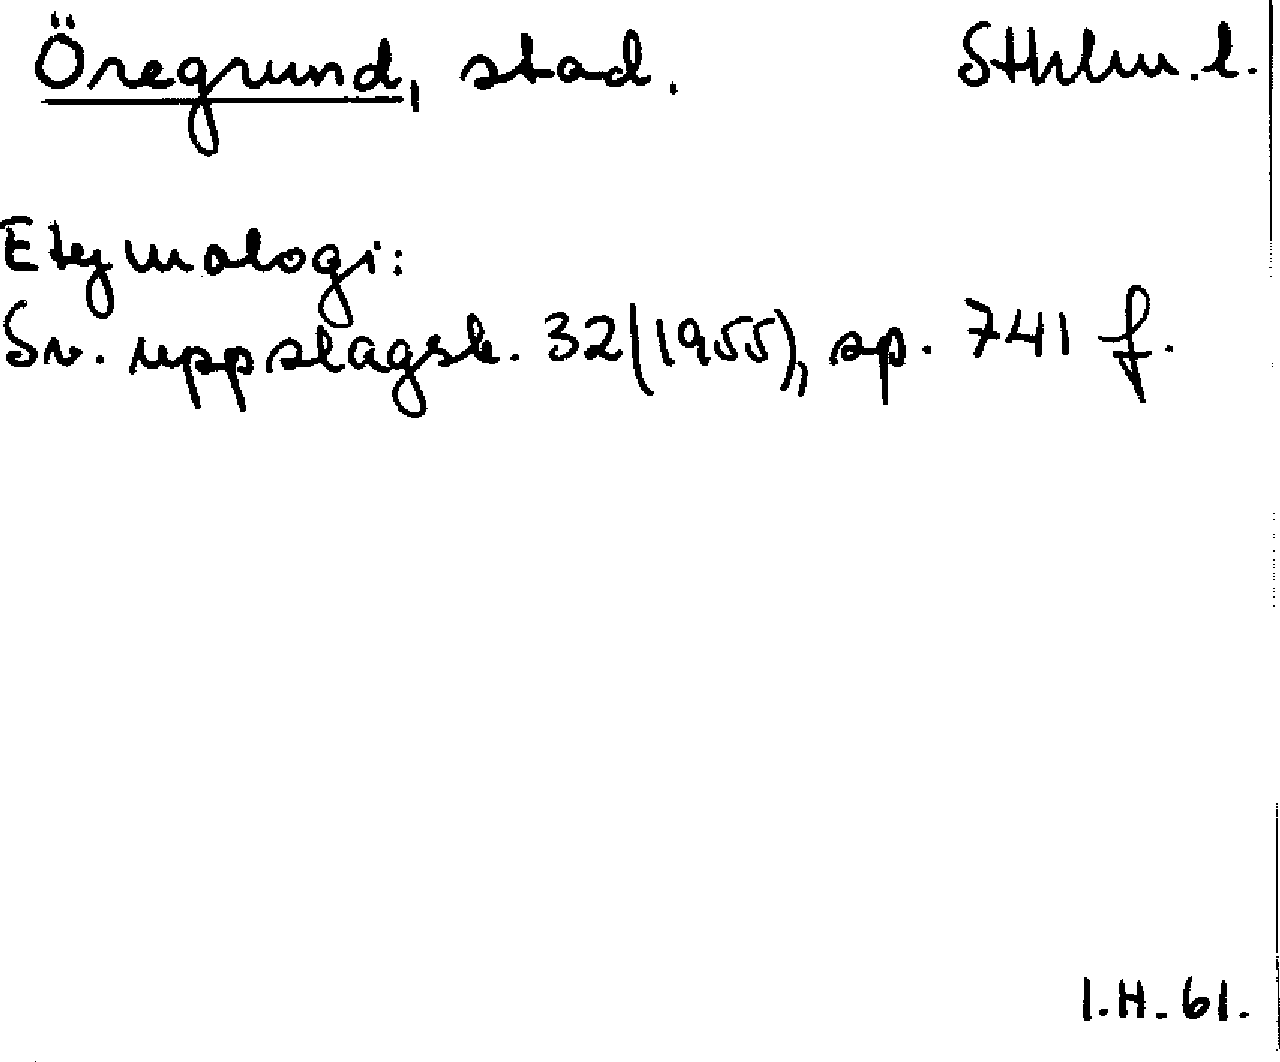 Öregrund, stad. Sthlm. l.
Etymologi:
Sv. uppslagsb. 32 (1955), sp. 741 f.
I.H. 61.